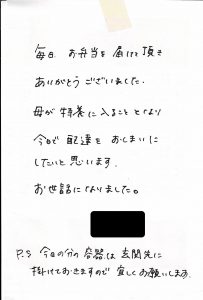 毎日 お弁当を届けて頂き
ありがとうございました.
母が特養に入ることとなり
今日で配達をおしまいに
したいと思います.
お世話になりました。
P.S 今日の分の容器は玄関先に
掛けておきますので宜しくお願いします.